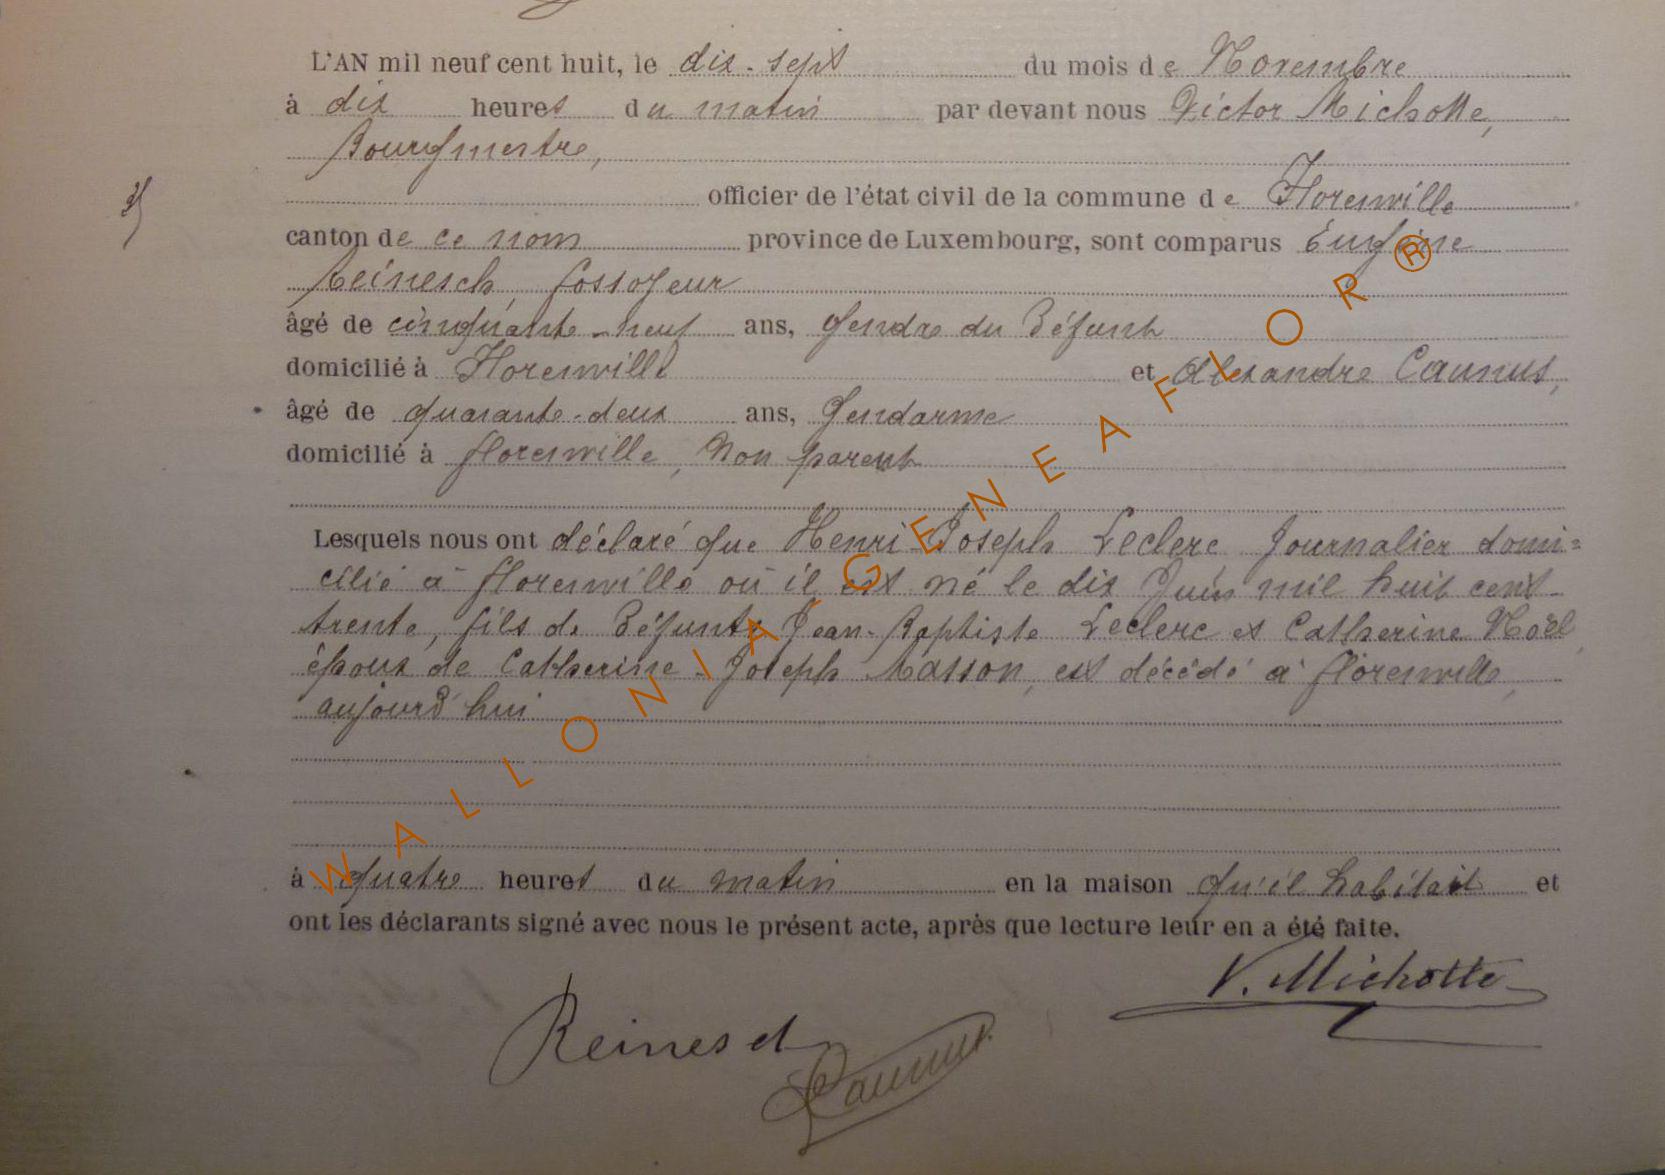 L'AN mil neuf cent huit, le dix-sept du mois de Novembre
à dix heures du matin par devant nous Victor Michotte,
Bourgmestre,
officier de l'état civil de la commune de Florenville
canton de ce nom province de Luxembourg, sont comparus Eugène
Reinesch, fossoyeur
âgé de cinquante-neuf ans, gendre du défunt
domicilié à Florenville et Alexandre Caunus,
âgé de quarante-deux ans, Gendarme
domicilié à florenville, Non parent
Lesquels nous ont déclaré que Henri-Joseph Leclerc, Journalier domi=
cilié à florenville où il est né le dix Juin mil huit cent
trente, fils de défunts Jean-Baptiste Leclerc et Catherine Noël,
époux de Catherine-Joseph Masson, est décédé à florenville,
aujourd'hui
à quatre heures du matin en la maison qu'il habitait et
ont les déclarants signé avec nous le présent acte, après que lecture leur en a été faite.
V. Michotte
Reinesch
Caunus
WALLONIA-GENEAFLOR®